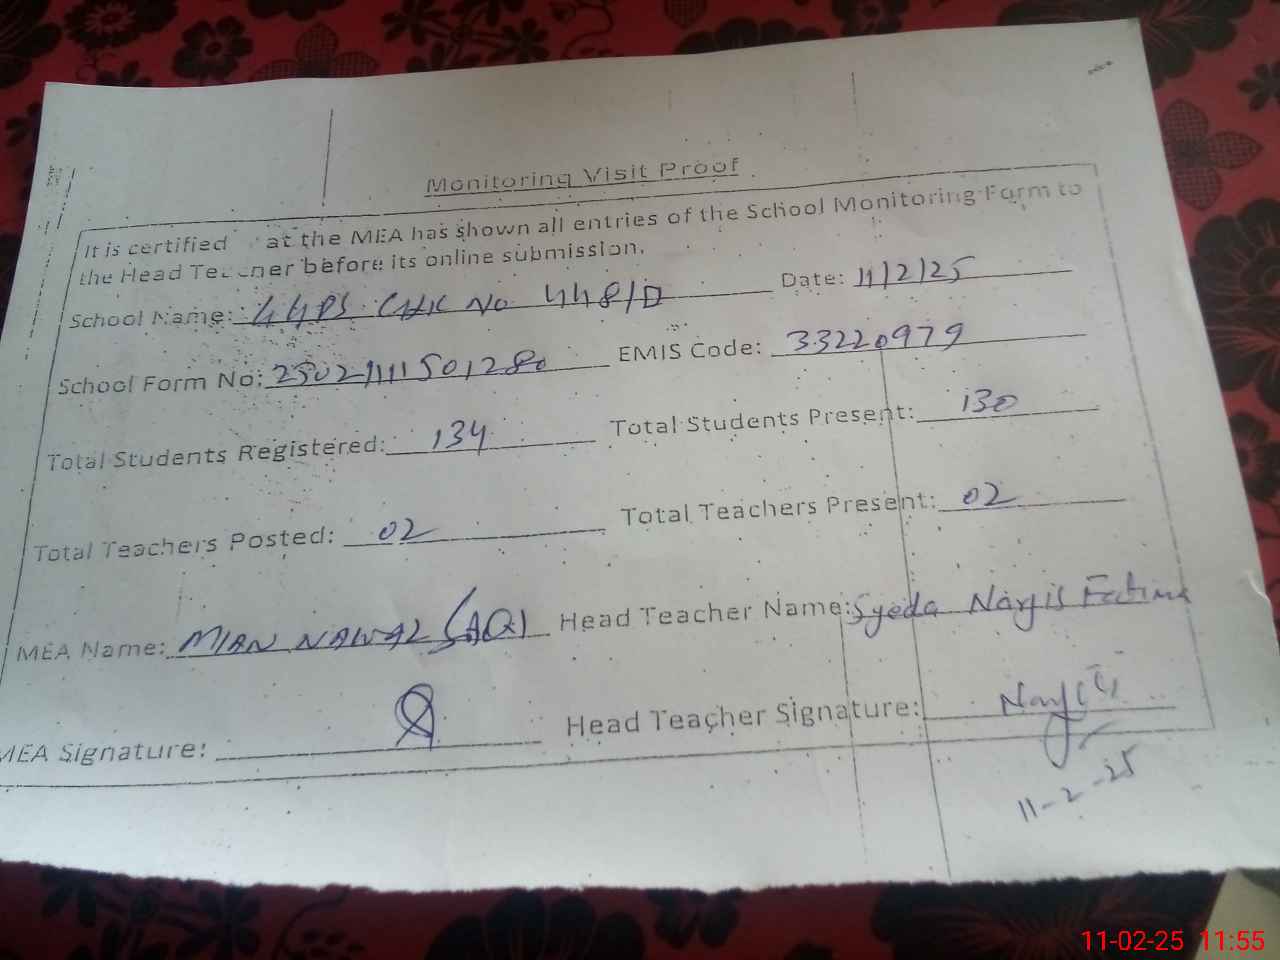 Monitoring Visit Proof
It is certified at the MEA has shown all entries of the School Monitoring Form to
the Head Teacher before its online submission.
School Name: GGPS Chk No 448/D Date: 11/2/25
School Form No: EMIS Code: 33220979
Total Students Registered: 134 Total Students Present: 130
Total Teachers Posted: 02 Total Teachers Present: 02
MEA Name: MIAN NAWAZ Head Teacher Name: Syeda Narjis Fatima
MEA Signature: Head Teacher Signature: Narjis
11-2-25
11-02-25 11:55